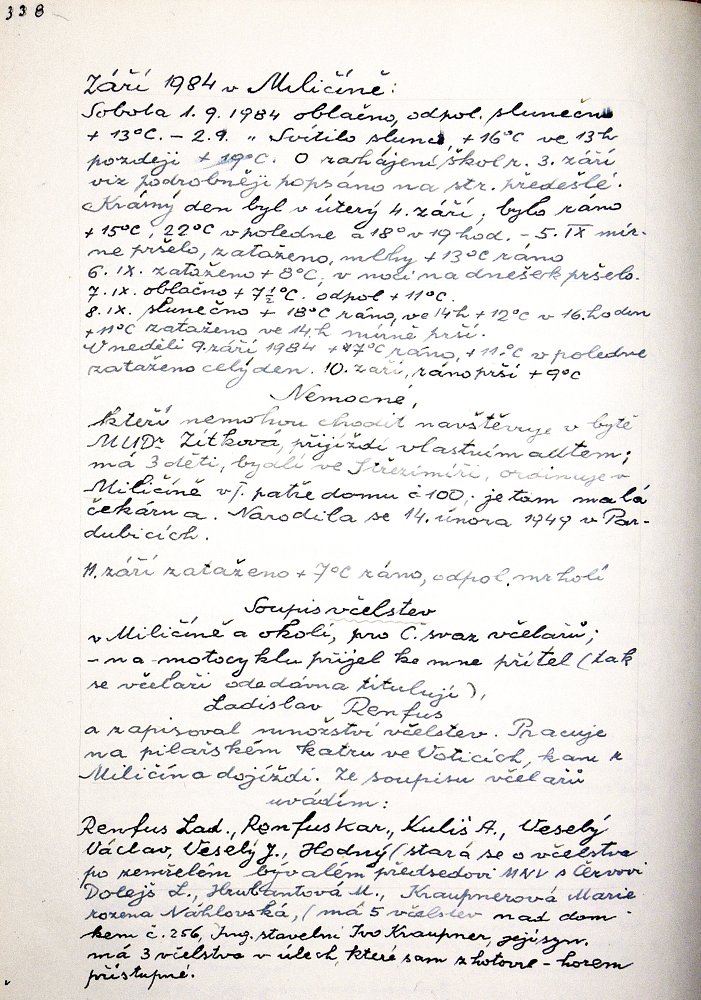 338
Září 1984 v Miličíně:
Sobota 1.9.1984 oblačno, odpol. slunečno
+ 13°C. – 2.9. " Svítilo slunce, +16°C ve 13h
později + 19°C. O zahájení škol. r. 3. září
viz podrobněji popsáno na str. předešlé.
Krásný den byl v úterý 4. září; bylo ráno
+15°C, 22°C v poledne a 18° v 19 hod. – 5. IX mír-
ně pršelo, zataženo, mlhy +13°C ráno
6. IX. zataženo +8°C, v noci na dnešek pršelo.
7. IX. oblačno +7½°C. odpol +11°C.
8. IX. slunečno + 18°C ráno, ve 14h +12°C v 16. hoden
+11°C zataženo ve 14.h mírně prší.
V neděli 9. září 1984 +7°C ráno, +11°C v poledne
zataženo celý den. 10. září, ráno prší +9°C
Nemocné,
kteří nemohou chodit navštěvuje v bytě
MUDr Zítková, přijíždí vlastním autem;
má 3 děti, bydlí ve Střezimíři, ordinuje v
Miličíně v I. patře domu č 100, je tam malá
čekárna. Narodila se 14. února 1949 v Par-
dubicích.
11. září zataženo +7°C ráno, odpol. mrholí
Soupis včelstev
v Miličíně a okolí, pro Č. svaz včelařů;
– na motocyklu přijel ke mne přítel (tak
se včelaři odedávna titulují),
Ladislav Renfus
a zapisoval množství včelstev. Pracuje
na pilařském katru ve Voticích, kam z
Miličína dojíždí. Ze soupisu včelařů
uvádím:
Renfus Lad., Renfus Kar., Kuliš A., Veselý
Václav, Veselý J., Hodný (stará se o včelstva
po zemřelém bývalém předsedovi MNV s Červovi
Dolejš L., Hrubantová M., Kraupnerová Marie
rozena Náhlovská, (má 5 včelstev nad dom-
kem č. 256, Ing. stavební Ivo Kraupner, její syn.
má 3 včelstva v úlech, které sam zhotovil – horem
přístupné.